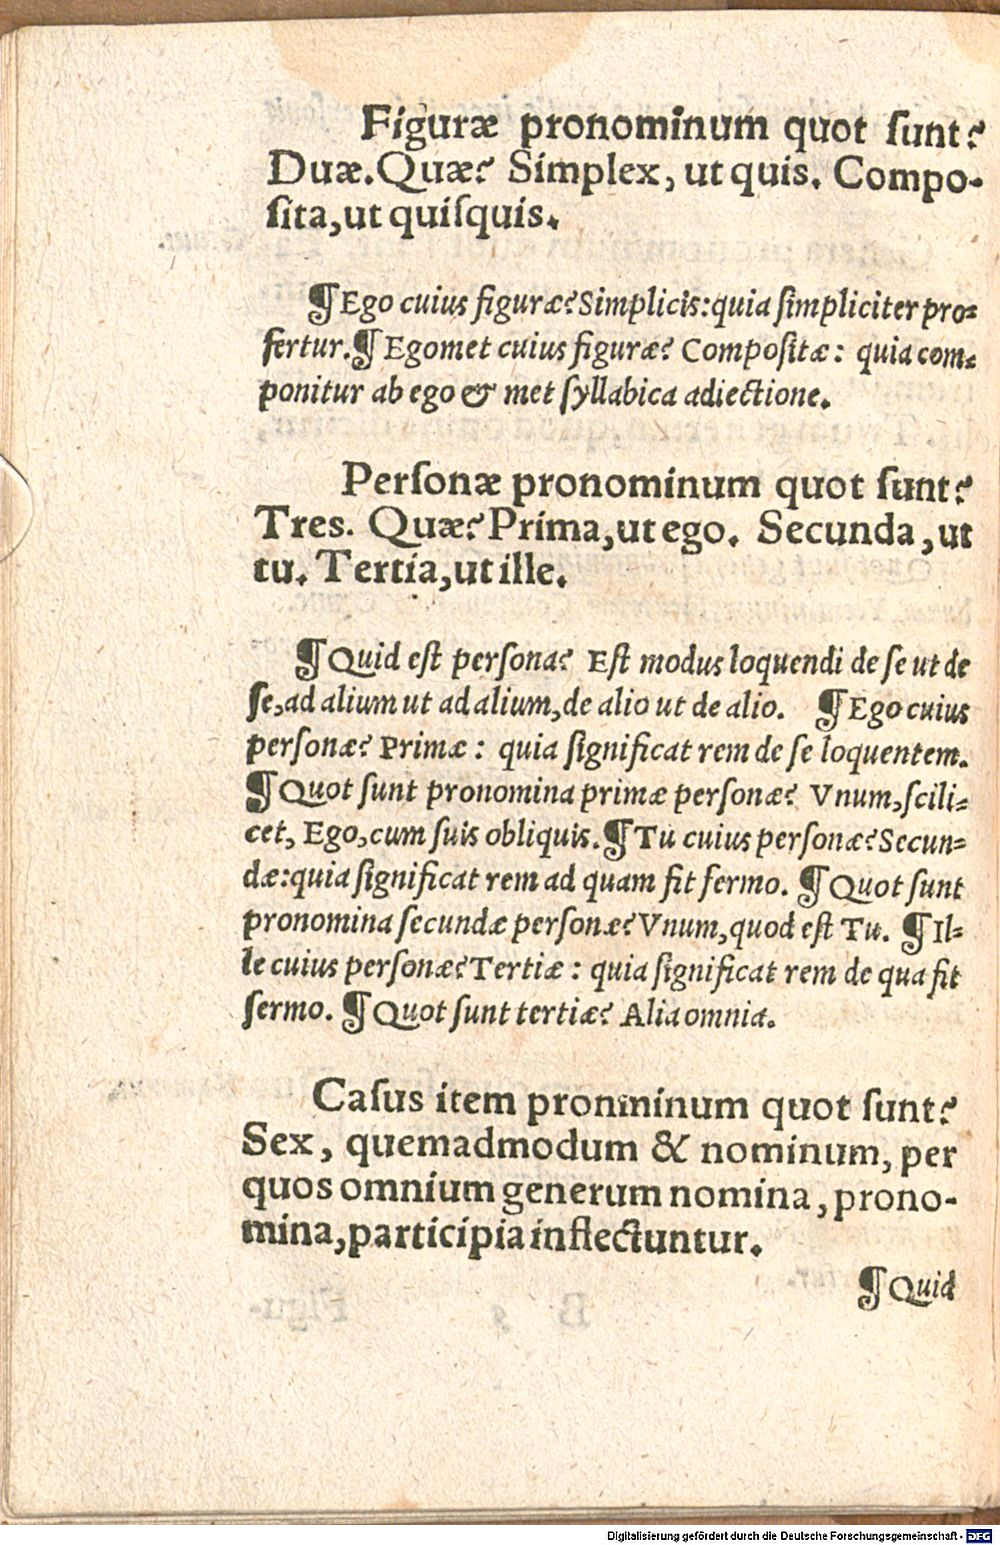 Figuræ pronominum quot ſunt?
Duæ. Quæ? Simplex, ut quis. Compo-
ſita, ut quiſquis.
¶ Ego cuius figuræ? Simplicis: quia ſimpliciter pro-
fertur. ¶ Egomet cuius figuræ? Compoſitæ: quia com-
ponitur ab ego & met ſyllabica adiectione.
Perſonæ pronominum quot ſunt?
Tres. Quæ? Prima, ut ego. Secunda, ut
tu. Tertia, ut ille.
¶ Quid eſt perſona? Eſt modus loquendi de ſe ut de
ſe, ad alium ut ad alium, de alio ut de alio. ¶ Ego cuius
perſonæ? Primæ: quia ſignificat rem de ſe loquentem.
¶ Quot ſunt pronomina primæ perſonæ? Vnum, ſcili-
cet, Ego, cum ſuis obliquis. ¶ Tu cuius perſonæ? Secun-
dæ: quia ſignificat rem ad quam fit ſermo. ¶ Quot ſunt
pronomina ſecundæ perſonæ? Vnum, quod eſt Tu. ¶ Il-
le cuius perſonæ? Tertiæ: quia ſignificat rem de qua fit
ſermo. ¶ Quot ſunt tertiæ? Alia omnia.
Caſus item pronminum quot ſunt?
Sex, quemadmodum & nominum, per
quos omnium generum nomina, prono-
mina, participia inflectuntur.
¶ Quid
Digitalisierung gefördert durch die Deutsche Forschungsgemeinschaft - DFG